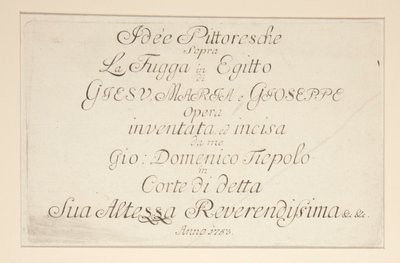 Idée Pittoresche
Sopra
La Fugga in Egitto
di
GIESV, MARIA e GIOSEPPE
Opera
inventata, ed incisa
da me
Gio: Domenico Tiepolo
in
Corte di detta
Sua Altezza Reverendissima &. &.
Anno 1753.